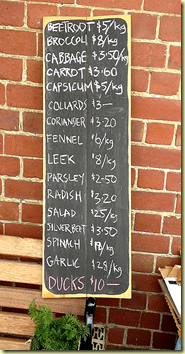 BEETROOT $5/kg
BROCCOLI $8/kg
CABBAGE $3.50/kg
CARROT $3.60
CAPSICUM $5/kg
COLLARDS $3—
CORIANDER $3.20
FENNEL $6/kg
LEEK $8/kg
PARSLEY $2.50
RADISH $3.20
SALAD $25/kg
SILVERBEET $3.50
SPINACH $18/kg
GARLIC $28/kg
DUCKS $10—